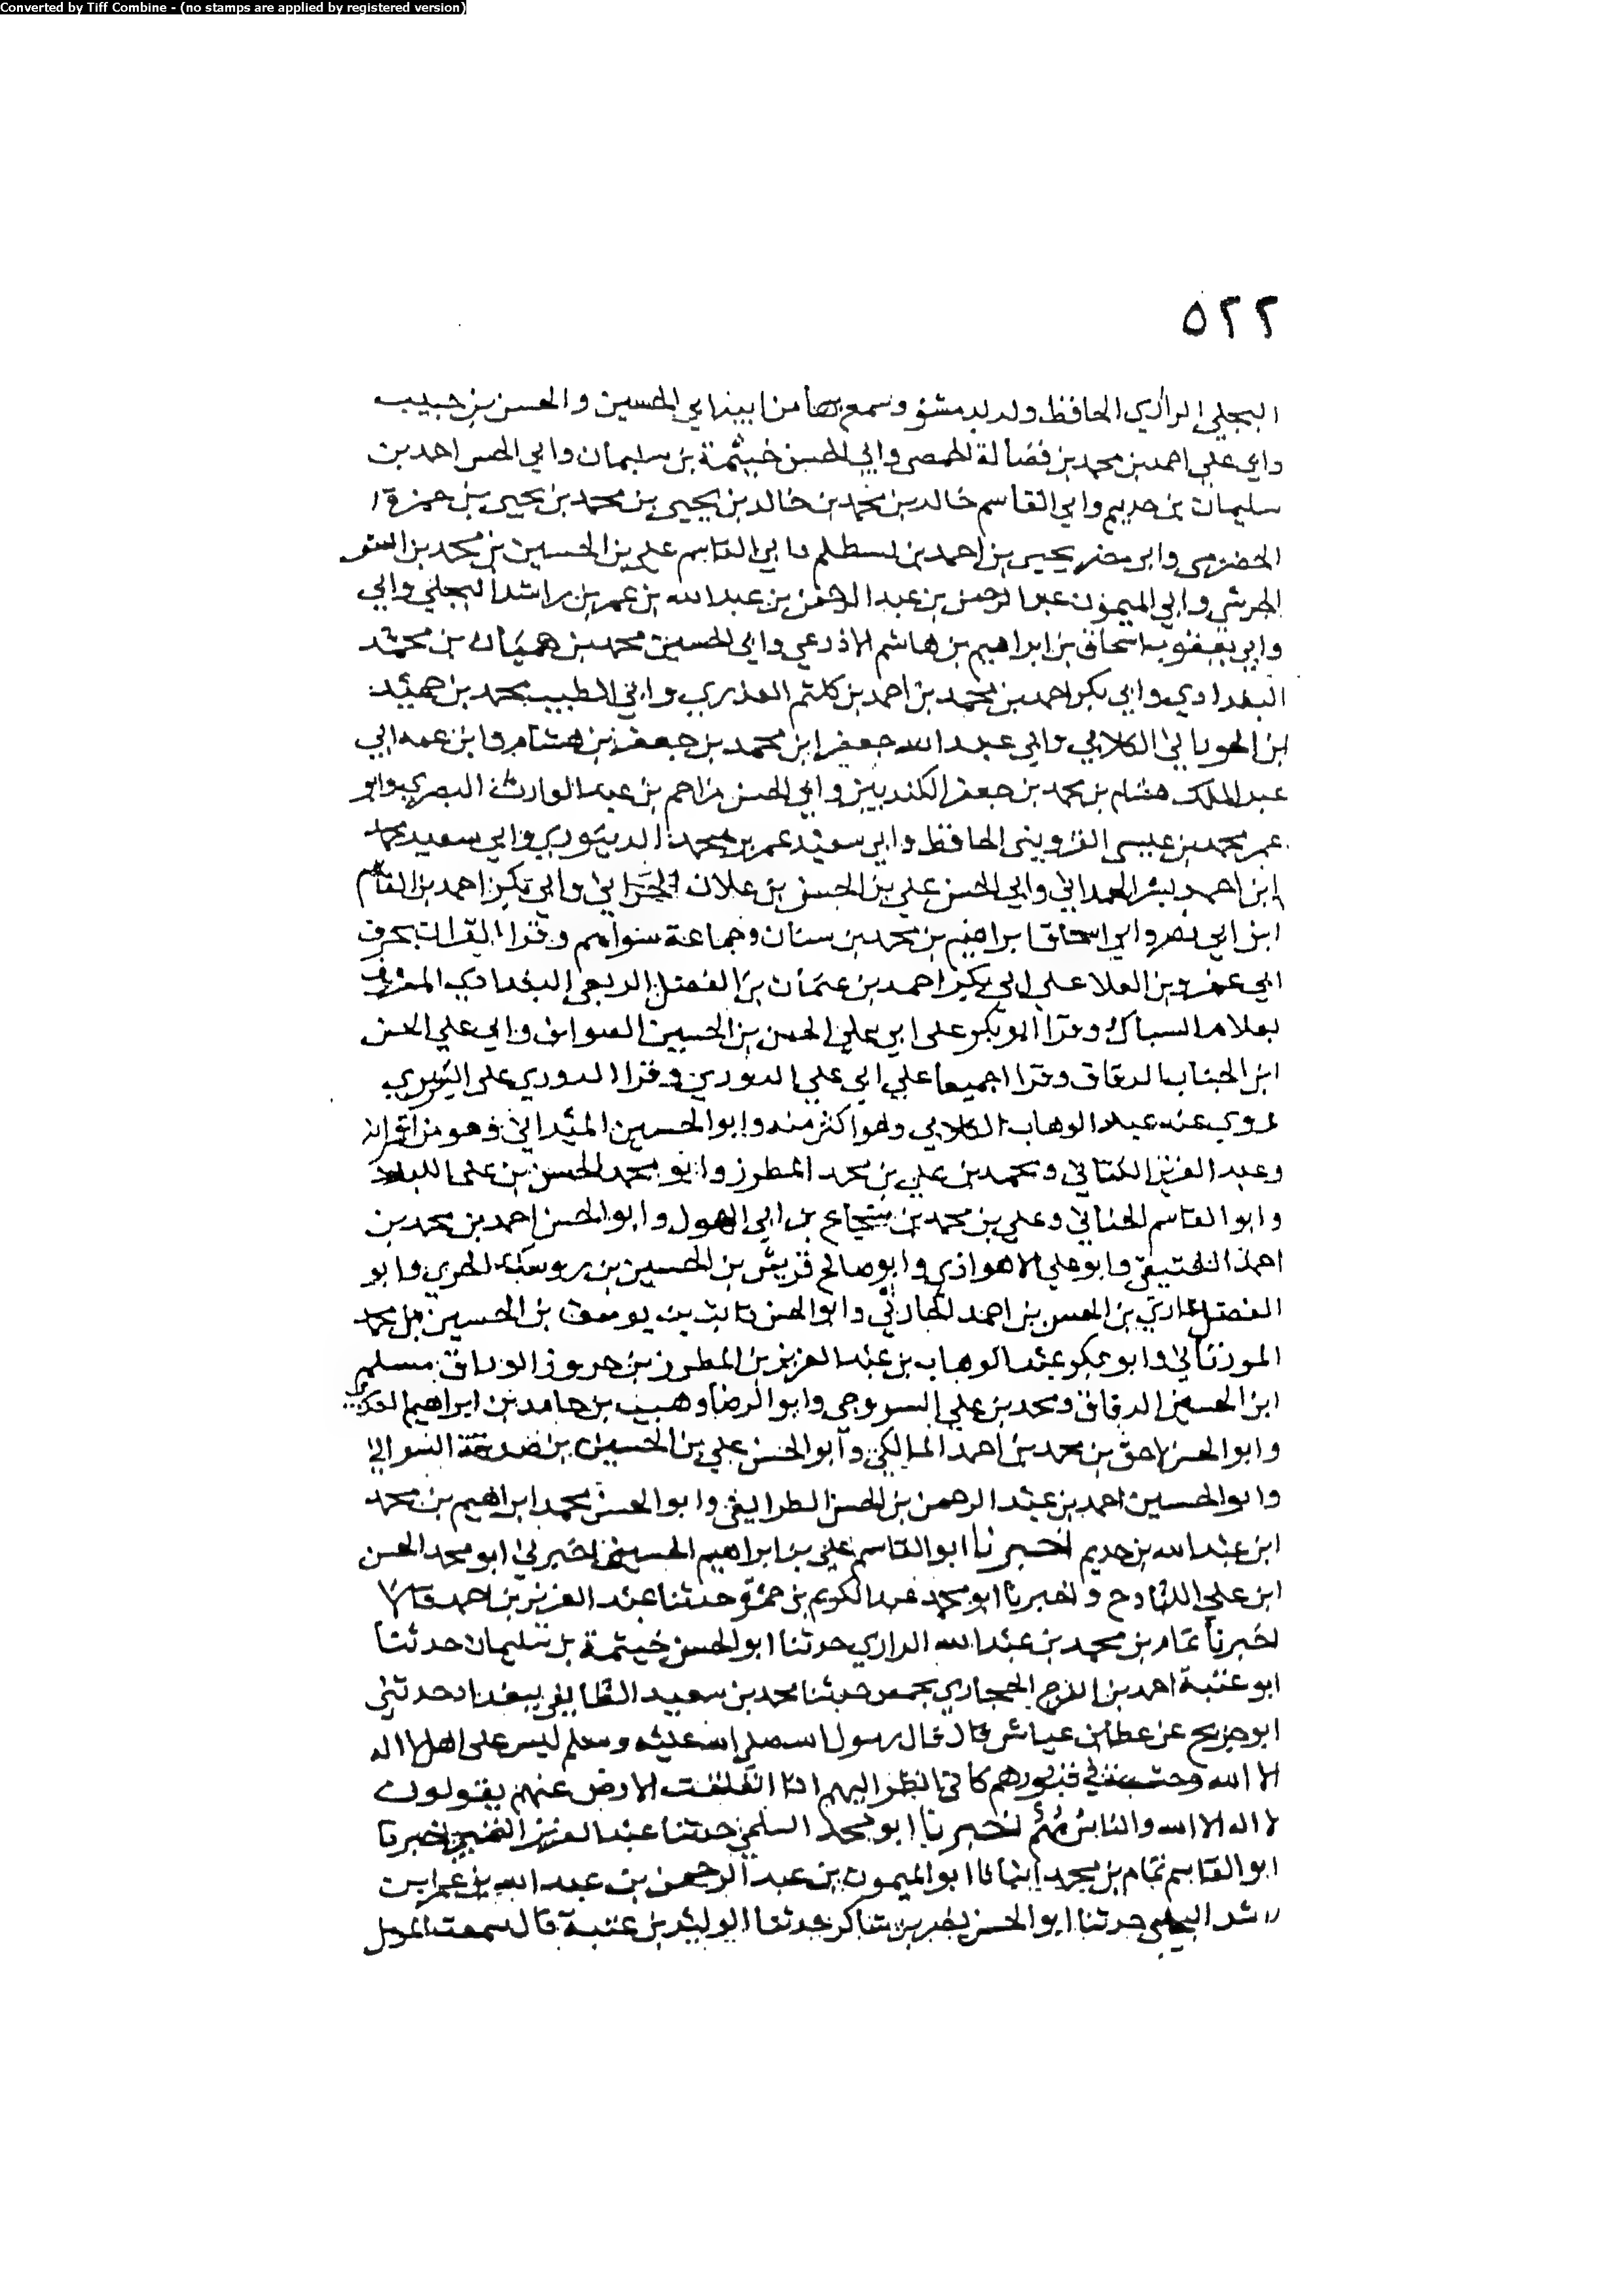 Converted by Tiff Combine - (no stamps are applied by registered version)
٥٢٢
البجلي الرازي الحافظ ولد بدمشق وسمع بها من ابيه ابي الحسين والحسن بن حبيب
وابي علي احمد بن محمد بن فضالة الحمصي وابي الحسن خيثمة بن سليمان وابي الحسن احمد بن
سليمان بن حديم وابي القاسم خالد بن محمد بن خالد بن يحيى بن محمد بن يحيى بن حمزة
الحضرمي وابي يحيى بن احمد بن بسطام وابي القاسم علي بن الحسين بن محمد بن السفر
الجرشي وابي الميمون عبد الرحمن بن عبد الرحمن بن عبد الله بن عمر بن راشد البجلي وابي
وابي يعقوب اسحاق بن ابراهيم بن هاشم الاذرعي وابي الحسين محمد بن هميان بن محمد
البغدادي وابي بكر احمد بن محمد بن احمد بن كلثم العذري وابي الطيب محمد بن حميد
بن الحوراني الكلابي وابي عبد الله جعفر ابن محمد بن جعفر بن هشام وابن عمه ابي
عبد الملك هشام بن محمد بن جعفر الكنديين وابي الحسن مزاحم بن عبد الوارث البصري وابو
عمر محمد بن عيسى القزويني الحافظ وابي سعيد عمر بن محمد الدينوري وابي سعيد محمد
ابن احمد بشر الهمداني وابي الحسن علي بن الحسن بن علان الحراني وابي بكر احمد بن القاسم
ابن ابي نصر وابي اسحاق ابراهيم بن محمد بن سنان وجماعة سواهم وقرا القران بحرف
ابي عمرو بن العلا على ابي بكر احمد بن عثمان بن الفضل الربعي البغدادي المعروف
بغلام السباك وقرا ابو بكر على ابي علي الحسن بن الحسين الصواف وابي علي الحسن
ابن الحباب الدقاق وقرا جميعا علي ابي علي الدوري وقرا الدوري على اليزيدي
روى عنه عبد الوهاب الكلابي وهو اكثر منه وابو الحسين الميداني وهو من اقرانه
وعبد العزيز الكتاني ومحمد بن علي بن محمد المطرز وابو محمد الحسن بن علي اللباد
وابو القاسم الحنائي وعلي بن محمد بن شجاع بن ابي الهول وابو الحسن احمد بن محمد بن
احمد العتيقي وابو علي الاهوازي وابو صالح قريش بن الحسين بن وابو
الفضل بن الحسن بن احمد وابو الحسن ثابت بن يوسف بن الحسين بن محمد
الورثاني وابو بكر عبد الوهاب بن عبد العزيز بن المطرز بن الوراق مسلم
ابن الحسين الدقاق ومحمد بن علي السروجي وابو الرضا وهيب بن حامد بن ابراهيم
وابو الحسن لاحق بن محمد بن احمد المالكي وابو الحسن علي بن الحسين بن صدقة الشرابي
وابو الحسين احمد بن عبد الرحمن بن الحسن الطرايفي وابو الحسن محمد ابراهيم بن محمد
ابن عبد الله بن حديم اخبرنا ابو القاسم علي بن ابراهيم الحسيني اخبرني ابو محمد الحسن
ابن علي اللباد ح واخبرنا ابو محمد عبد الكريم بن حمزة حدثنا عبد العزيز بن احمد قالا
اخبرنا تمام بن محمد بن عبد الله الرازي حدثنا ابو الحسن خيثمة بن سليمان حدثنا
ابو عتبة احمد بن الفرج الحجازي بحمص حدثنا محمد بن سعيد الطايفي ببغداد حدثني
ابو جريج عن عطا بن عباس قال قال رسول الله صلى الله عليه وسلم ليس على اهل لا اله
الا الله وحشة في قبورهم كاني انظر اليهم اذا انفلقت الارض عنهم يقولون
لا اله الا الله والناس بُهُم اخبرنا ابو محمد السلمي حدثنا عبد العزيز التميمي اخبرنا
ابو القاسم تمام بن محمد انبانا ابو الميمون بن عبد الرحمن بن عبد الله بن عمر بن
راشد البجلي حدثنا ابو الحسن بن شاكر حدثنا الوليد بن عتبة قال سمعت